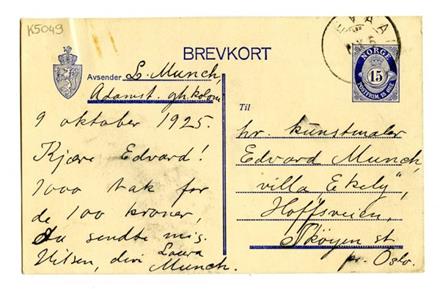 K5049
BREVKORT
NORGE
15
Avsender L. Munch,
9 oktober 1925.
Kjære Edvard!
1000 tak for
de 100 kroner,
du sendte mig.
Hilsen, din Laura
Munch.
Til
hr. kunstmaler
Edvard Munch,
villa "Ekely",
Hoffsveien,
Skøyen st.
pr. Oslo.